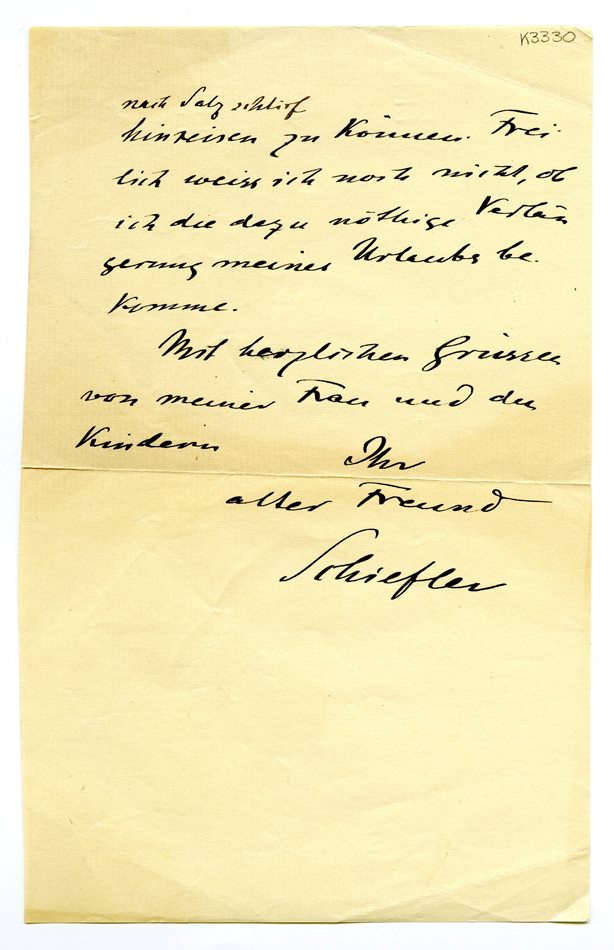 K3330
nach Salzschlirf
hinreisen zu können. Frei-
lich weiss ich noch nicht, ob
ich die dazu nöthige Verlän
gerung meines Urlaubs be-
komme.
Mit herzlichen Grüssen
von meiner Frau und den
Kindern
Ihr
alter Freund
Schiefler